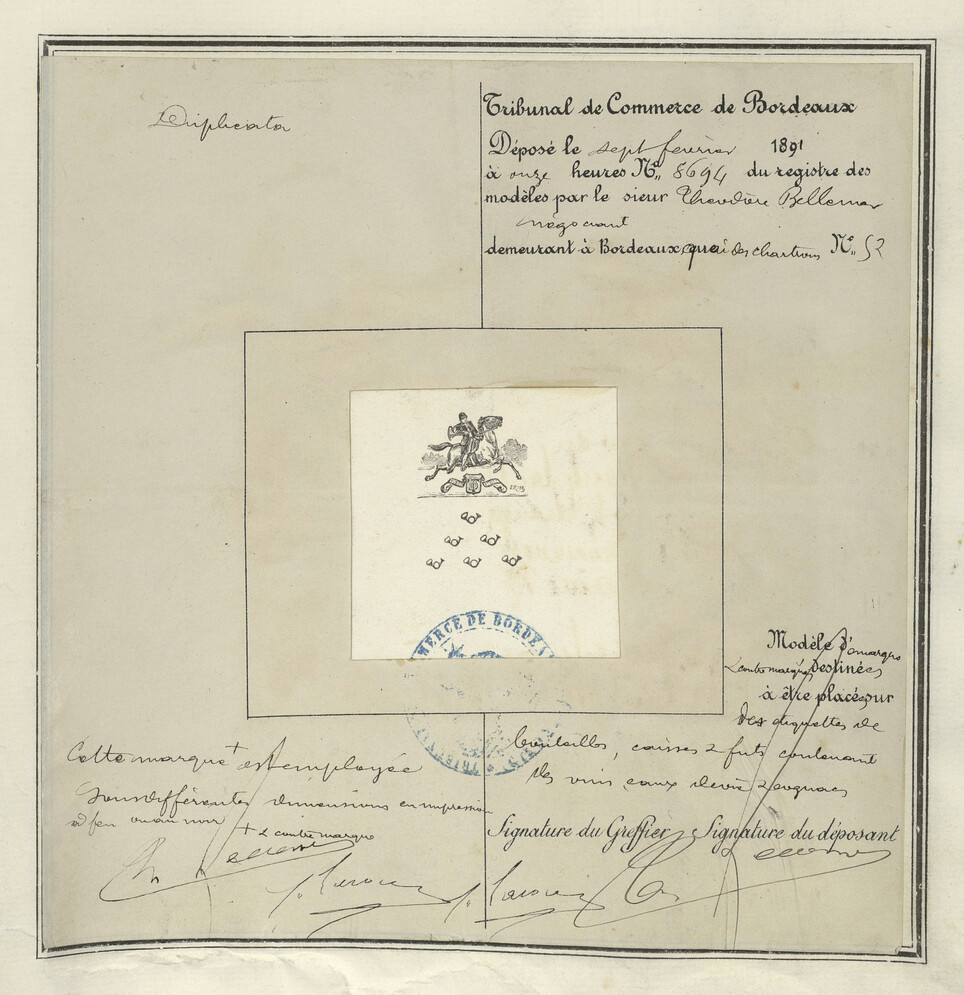 Duplicata
Tribunal de Commerce de Bordeaux
Déposé le sept fevrier 1891
à onze heures No. 8694 du registre des
modèles par le sieur Theodore
négociant
demeurant à Bordeaux quai des chartrons No. 52
COMMERCE DE BORDEAUX
Modèle d'1 marque
& contremarque Destinées
à être placés sur
des etiquettes de
bouteilles, caisses & futs contenant
des vins eaux de vie & cognacs
Cette marque + est employée
sous différentes dimensions en impression
à feu ou au noir
+ & contremarque
Signature du Greffier Signature du déposant